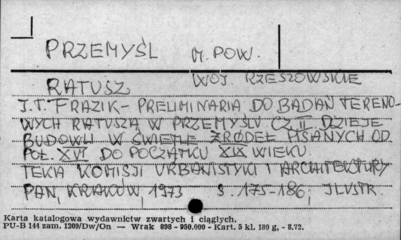 PRZEMYŚL M. POW.
WOJ. RZESZOWSKIE
RATUSZ
J.T. FRAZIK - PRELIMINARIA DO BADAŃ TERENO-
WYCH RATUSZA W PRZEMYŚLU CZ. I DZIEJE
BUDOWLI W ŚWIETLE ŹRÓDEŁ PISANYCH OD
POŁ. XVI DO POCZĄTKU XIX WIEKU.
TEKA KOMISJI URBANISTYKI I ARCHITEKTURY
PAN, KRAKÓW, 1973 S. 175-186, ILUSTR.
Karta katalogowa wydawnictw zwartych i ciągłych.
PU-B 144 zam. 1209/Dw/On — Wrak 898 - 950.000 - Kart. 5 kl. 180 g, - 8.72.